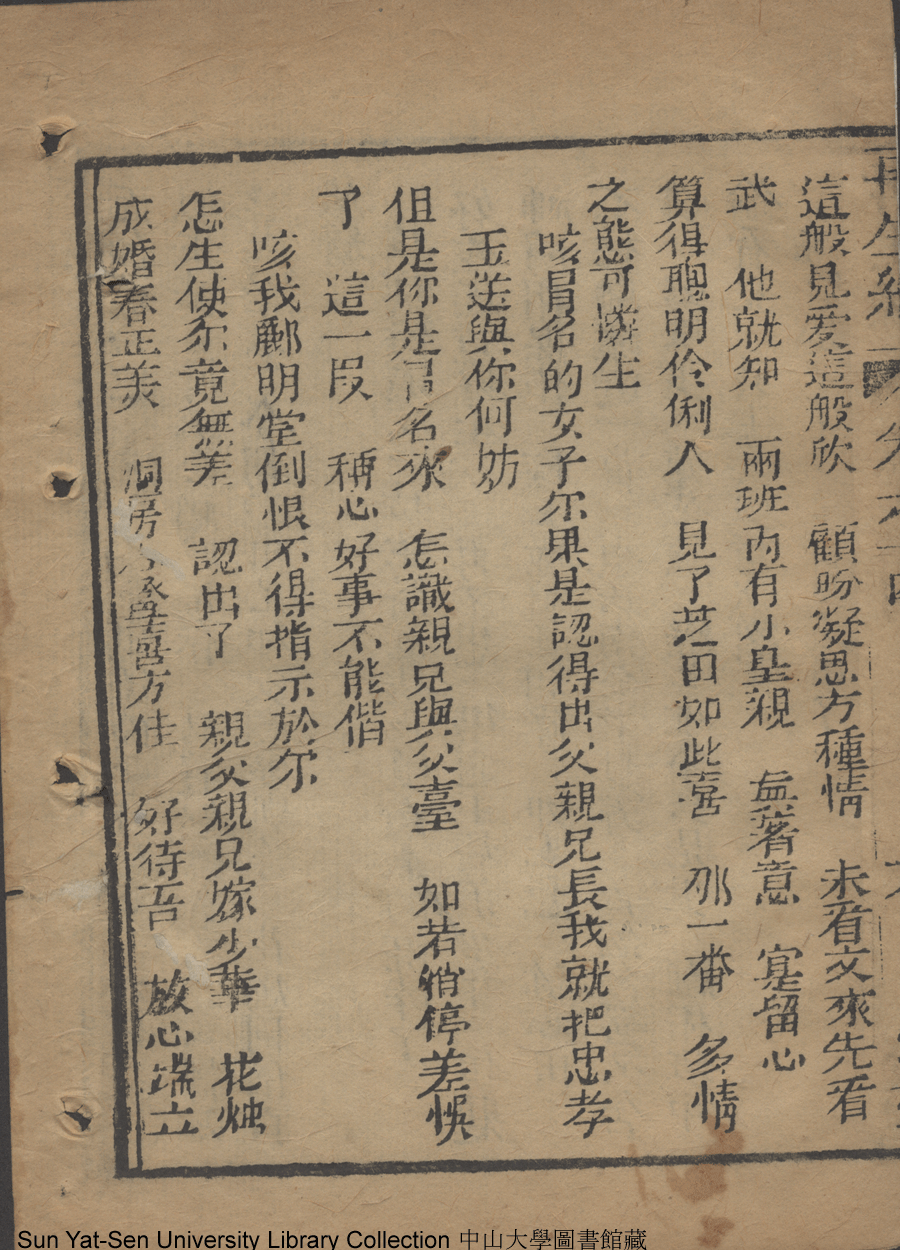 這般見爱這般欣　顧盼凝思方種情　未看文來先看
武　他就知　兩班內有小皇親　血著意　寔留心
算得聰明伶俐人　見了芝田如此喜　那一番　多情
之態可憐生
咳冒名的女子尔果是認得出父親兄長我就把忠孝
玉送與你何妨
但是你是冒名來　怎識親兄與父臺　如若稍停差悞
了　這一段　稱心好事不能偕
咳我酈明堂倒恨不得指示於尔
怎生使尔竟無差　認出了　親父親兄嫁少華　花烛
成婚春正美　洞房喜方佳　好待吾　放心端立
Sun Yat-Sen University Library Collection 中山大學圖書館藏